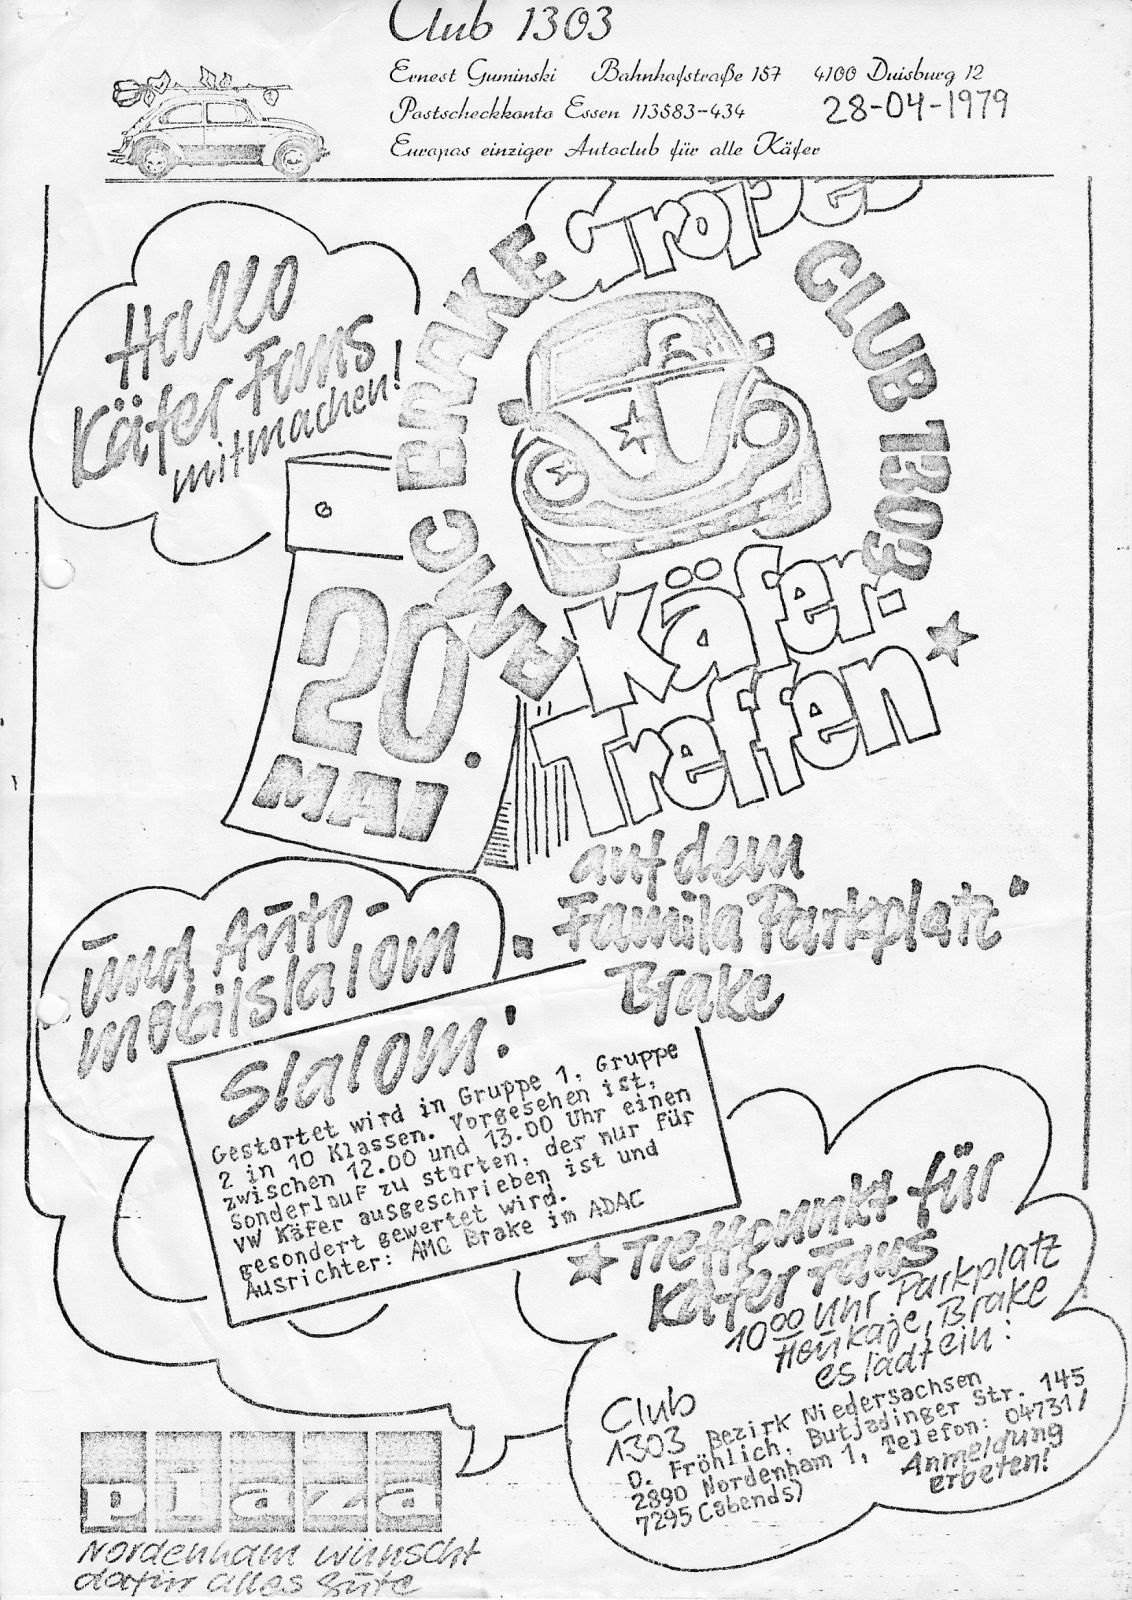 Club 1303
Ernest Guminski Bahnhofstraße 157 4100 Duisburg 12
Postscheckkonto Essen 113583-434
28-04-1979
Europas einziger Autoclub für alle Käfer
Hallo
Käfer Fans
mitmachen!
AMC BRAKE
Großes
CLUB 1303
Käfer-
Treffen
20.
MAI
auf dem
"Famila Parkplatz"
Brake
und Auto-
mobilslalom
Slalom!
Gestartet wird in Gruppe 1, Gruppe
2 in 10 Klassen. Vorgesehen ist,
zwischen 12.00 und 13.00 Uhr einen
Sonderlauf zu starten, der nur für
VW Käfer ausgeschrieben ist und
gesondert gewertet wird.
Ausrichter: AMC Brake im ADAC
Treffpunkt für
Käfer Fans
10⁰⁰ Uhr Parkplatz
Heukaje, Brake
es lädt ein:
Club
1303 Bezirk Niedersachsen
D. Fröhlich, Butjadinger Str. 145
2890 Nordenham 1, Telefon: 04731/
7295 (abends)
Anmeldung
erbeten!
plaza
Nordenham wünscht
dafür alles gute